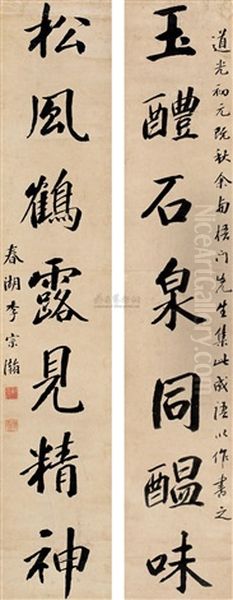 玉醴石泉同醖味
道光初元既秋余与梧门先生集此成语以作书之
松風鶴露見精神
春湖李宗瀚
NiceArtGallery.com